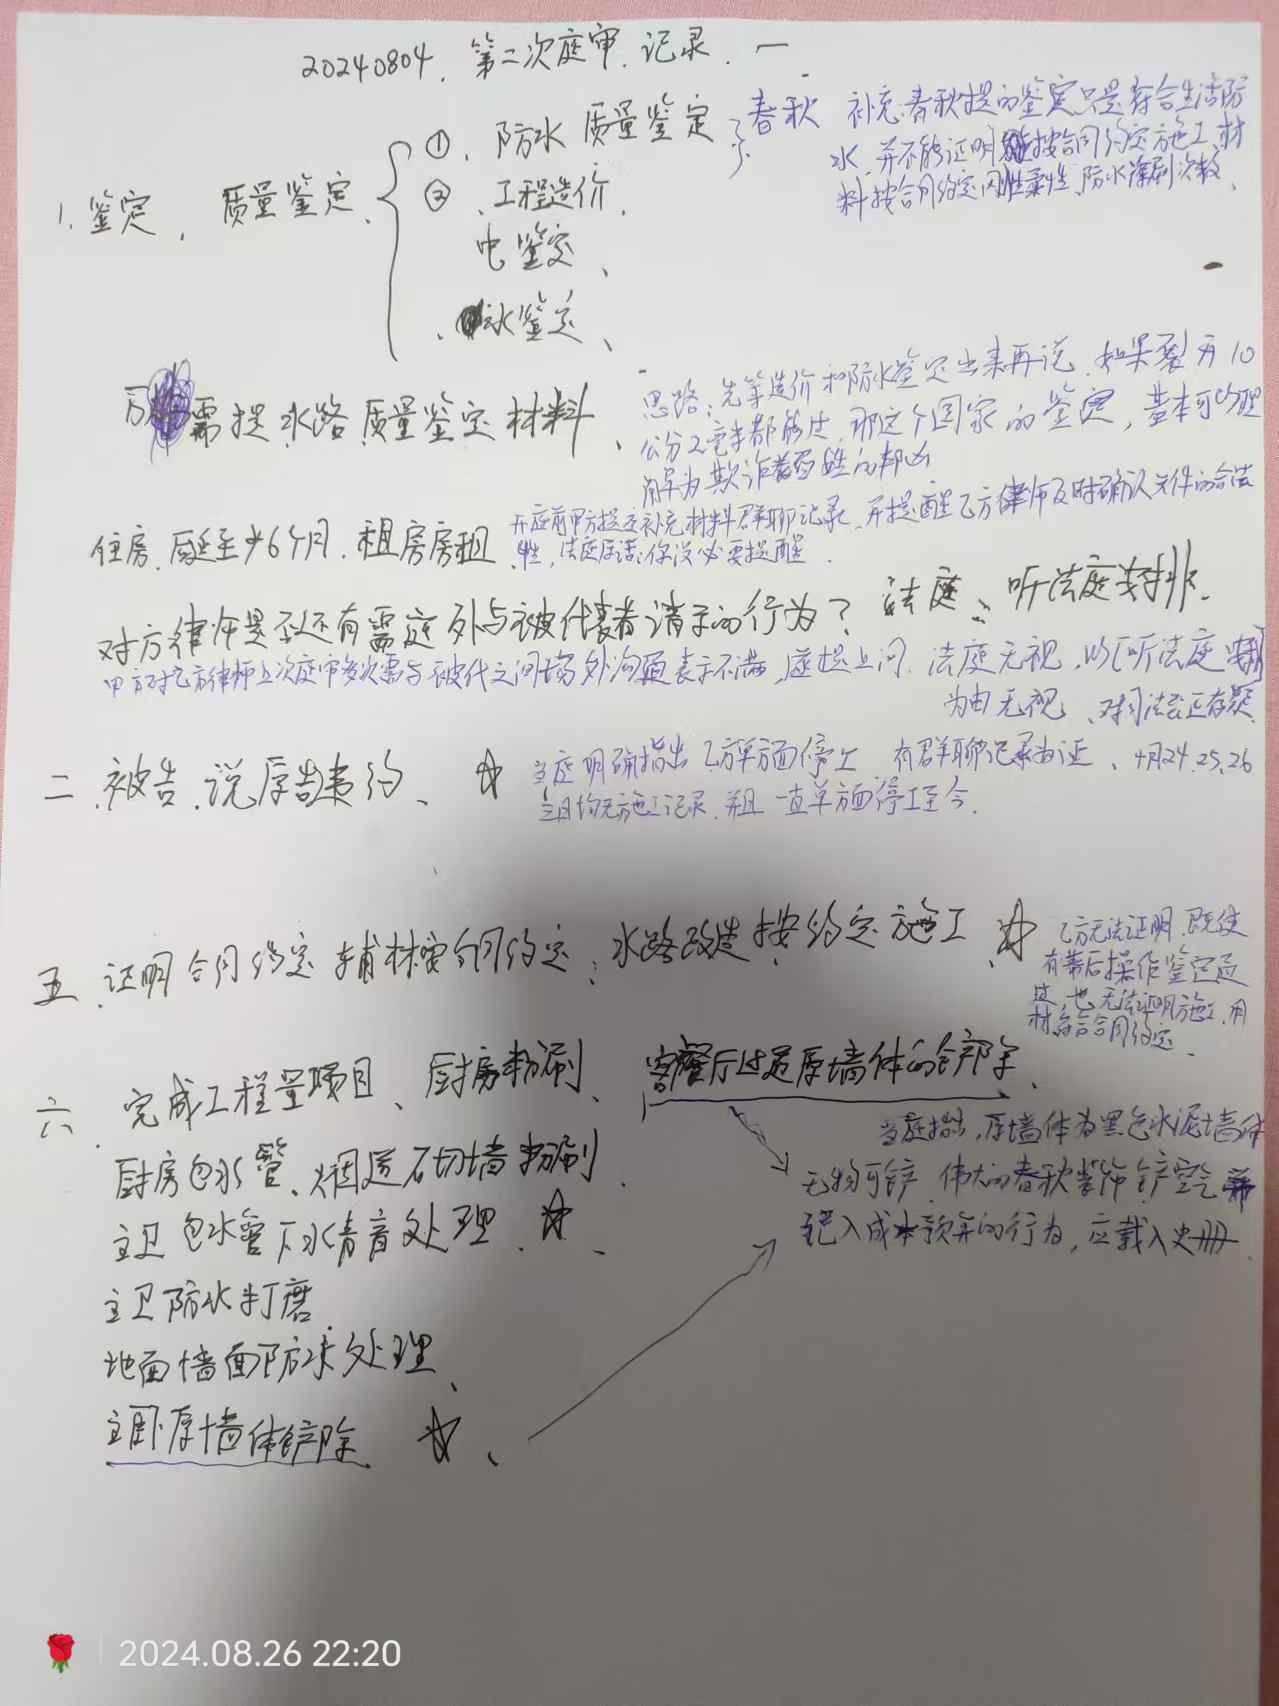 20240804. 第二次庭审. 记录. 一
1. 鉴定, 质量鉴定
①. 防水 质量鉴定 春秋
② 、工程造价.
电鉴定、
水鉴定、
补充:春秋提的鉴定只是符合生活防
水,并不能证明按合同约定施工,材
料按合同约定刚性柔性、防水涂刷次数、
需提 水路 质量鉴定 材料、
思路:先等造价和防水鉴定出来再说. 如果裂开10
公分2毫米都能过,那这个国家的鉴定,基本可以理
解为欺诈百姓的帮凶
住房. 延至少6个月. 租房房租
开庭前甲方提交补充材料群聊记录,并提醒乙方律师及时确认文件的合法
性, 法庭原话:你没必要提醒.
对方律师是否还有需庭外与被代表者请示的行为? 法庭、听法庭安排.
甲方对乙方律师上次庭审多次需与被代之间场外沟通表示不满, 遂提上问. 法庭无视, 以听法庭安排
为由无视、对司法公正存疑.
二、被告、说原告违约、☆
当庭明确指出乙方单方面停工 有群聊记录为证、4月24.25.26
三日均无施工记录. 并且一直单方面停工至今.
五、证明合同约定 辅材按合同约定、水路改造 按约定施工、☆
乙方无法证明. 既使
有幕后操作鉴定通
过, 也无法证明施工. 用
材符合合同约定.
六、完成工程量项目、厨房粉刷、客餐厅过道原墙体的铲除、
厨房包水管、烟道石切墙粉刷.
主卫包水管下水静音处理、☆、
主卫防水打磨
地面墙面防水处理、
主卧原墙体铲除、☆、
当庭指出, 原墙体为黑色水泥墙体
无物可铲. 伟大的春秋装饰铲空气
记入成本预算的行为, 应载入史册.
2024.08.26 22:20